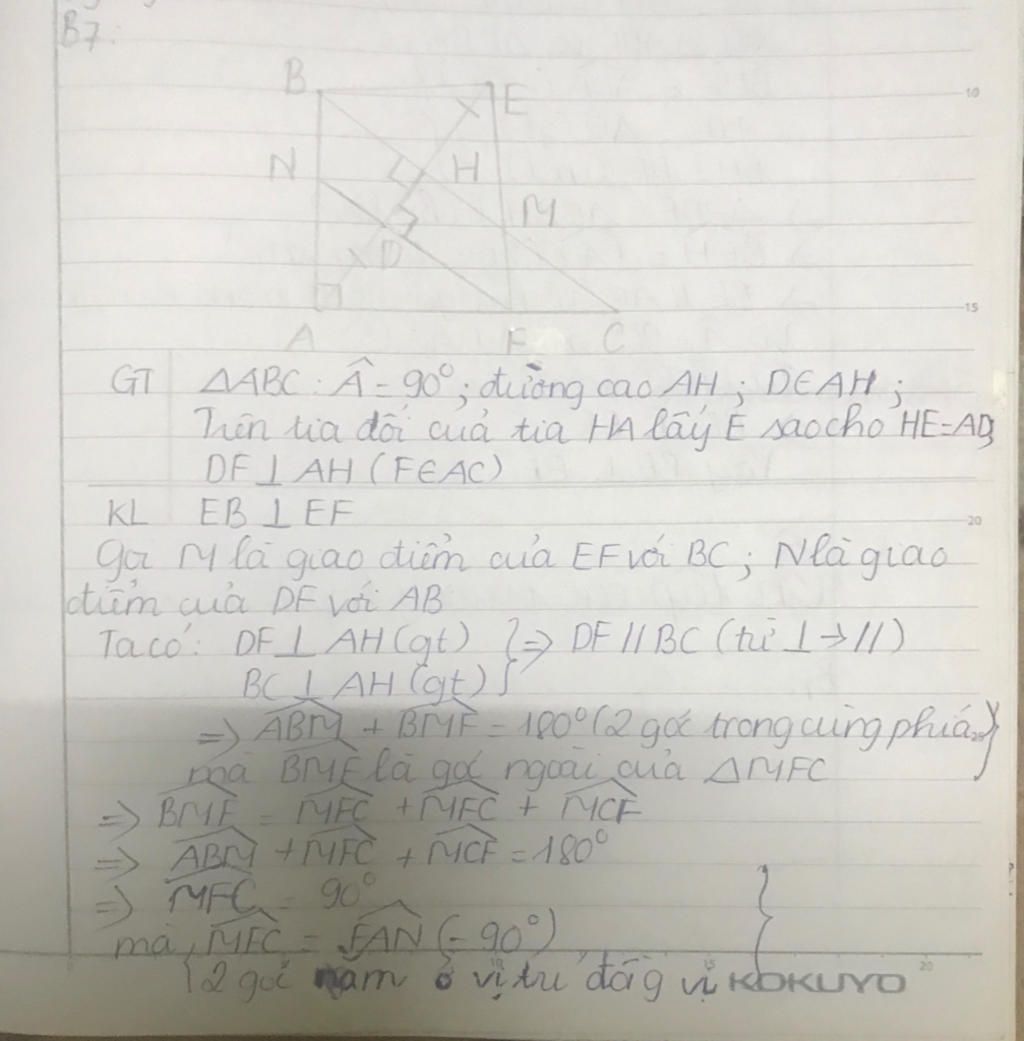 B7:
B E
N H
M
D
A F C
10
15
GT ΔABC: Â = 90°; đường cao AH; D∈AH;
Trên tia đối của tia HA lấy E sao cho HE=AD;
DF⊥AH (F∈AC)
KL EB⊥EF
20
Gọi M là giao điểm của EF với BC; N là giao
điểm của DF với AB
Ta có: DF⊥AH(gt) } => DF//BC (từ ⊥→//)
BC⊥AH(gt)
=> ABM + BMF = 180° (2 góc trong cùng phía) }
mà BMF là góc ngoài của ΔMFC
=> BMF = MFC + MFC + MCF
=> ABM + MFC + MCF = 180°
=> MFC = 90°
mà, MFC = FAN (= 90°)
2 góc nằm ở vị trí đồg vị KOKUYO
15
20